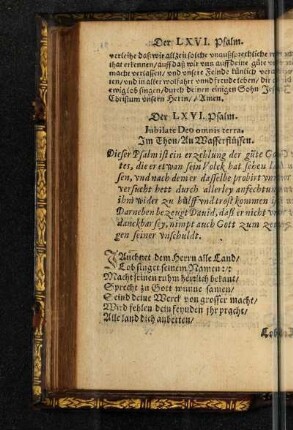 Der LXVI. Psalm.
verleihe daß wir allzeit solche vnaussprechliche
that erkennen / auff daß wir vns auff deine güte vnd
macht verlassen / vnd vnsere Feinde künlich
vnd in aller wolfahrt vnnd freude leben / die
ewig lobsingen / durch deinen einigen Sohn Jesum
Christum vnsern Herrn / Amen.
Der LXVI. Psalm.
Iubilate Deo omnis terra.
Im Thon / An Wasserflüssen.
Dieser Psalm ist ein erzehlung der güte Gottes
die er etwan sein Volck hat sehen
sen, vnd nach dem er dasselbe probirt vnnd
versucht hett durch allerley anfechtung
ihm wider zu hülff vnd trost kommen
Darneben bezeugt Dauid, daß er nicht
danckbar sey, nimpt auch Gott zum
gen seiner vnschuldt.
JAuchzet dem Herrn alle Land /
Lobsinget seinem Namen :
Macht seinen ruhm herzlich bekant /
Sprecht zu Gott mit namen /
Seind deine Werck von grosser macht /
Wird fehlen dein feynden jhr pracht /
Alle land dich anbetten /